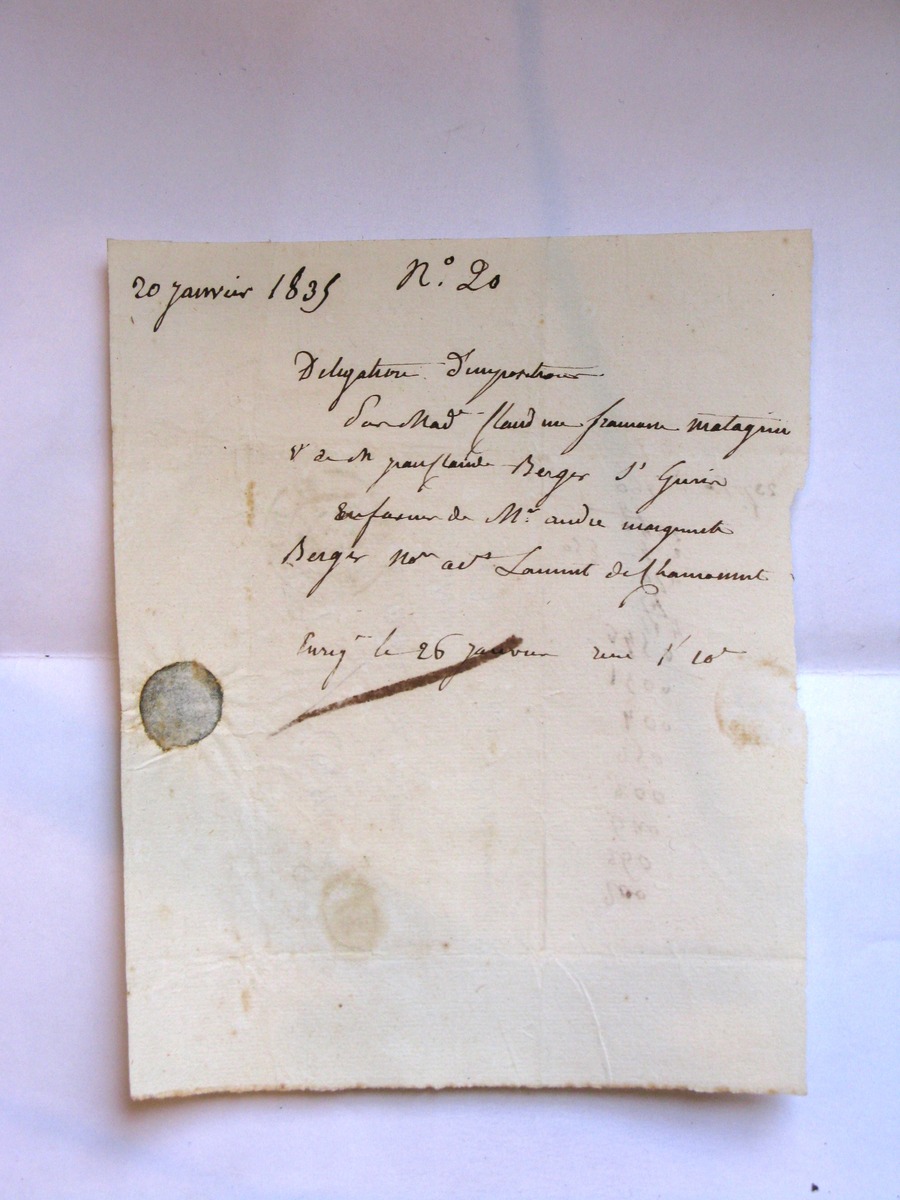 20 janvier 1835 N.º 20
Delegation D'impositions
Par Mad.e Claudine francoise matagrin
V.e de M jean Claude Berger St Guris
En faveur de Mr. andre marguerite
Berger No.re a St Laurent de Chamousset
Enreg. le 26 janvier 1f 10c